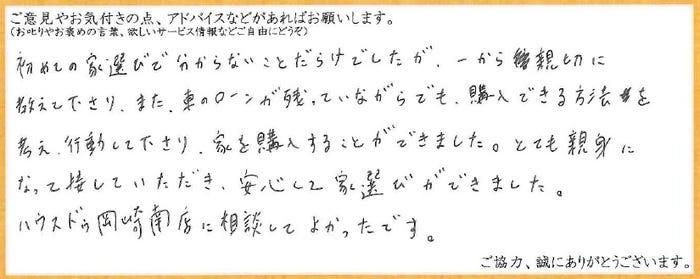 ご意見やお気付きの点、アドバイスなどがあればお願いします。
(お叱りやお褒めの言葉、欲しいサービス情報などご自由にどうぞ)
初めての家選びで分からないことだらけでしたが、一から親切に
教えて下さり、また、車のローンが残っていながらでも、購入できる方法を
考え、行動して下さり、家を購入することができました。とても親身に
なって接していただき、安心して家選びができました。
ハウスドゥ岡崎南店に相談してよかったです。
ご協力、誠にありがとうございます。